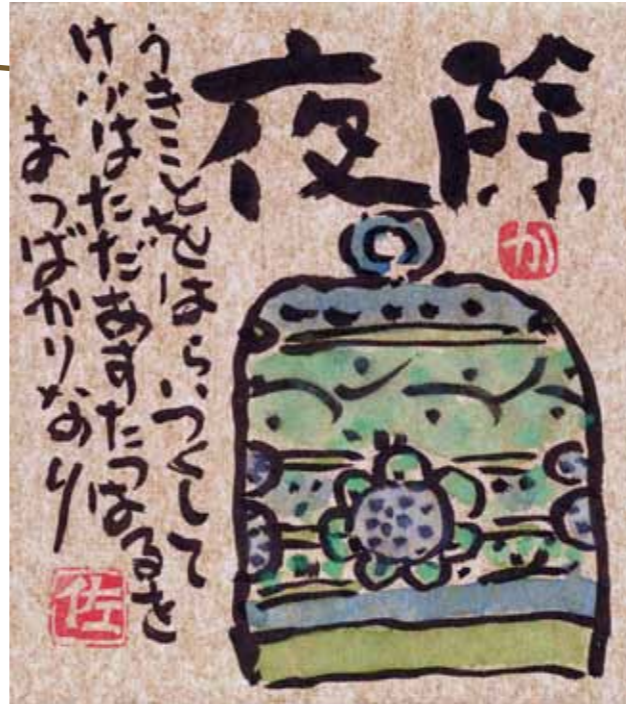 除夜
か
うきことをはらいつくして
けふはただあすたつはるを
まつばかりなり
佐